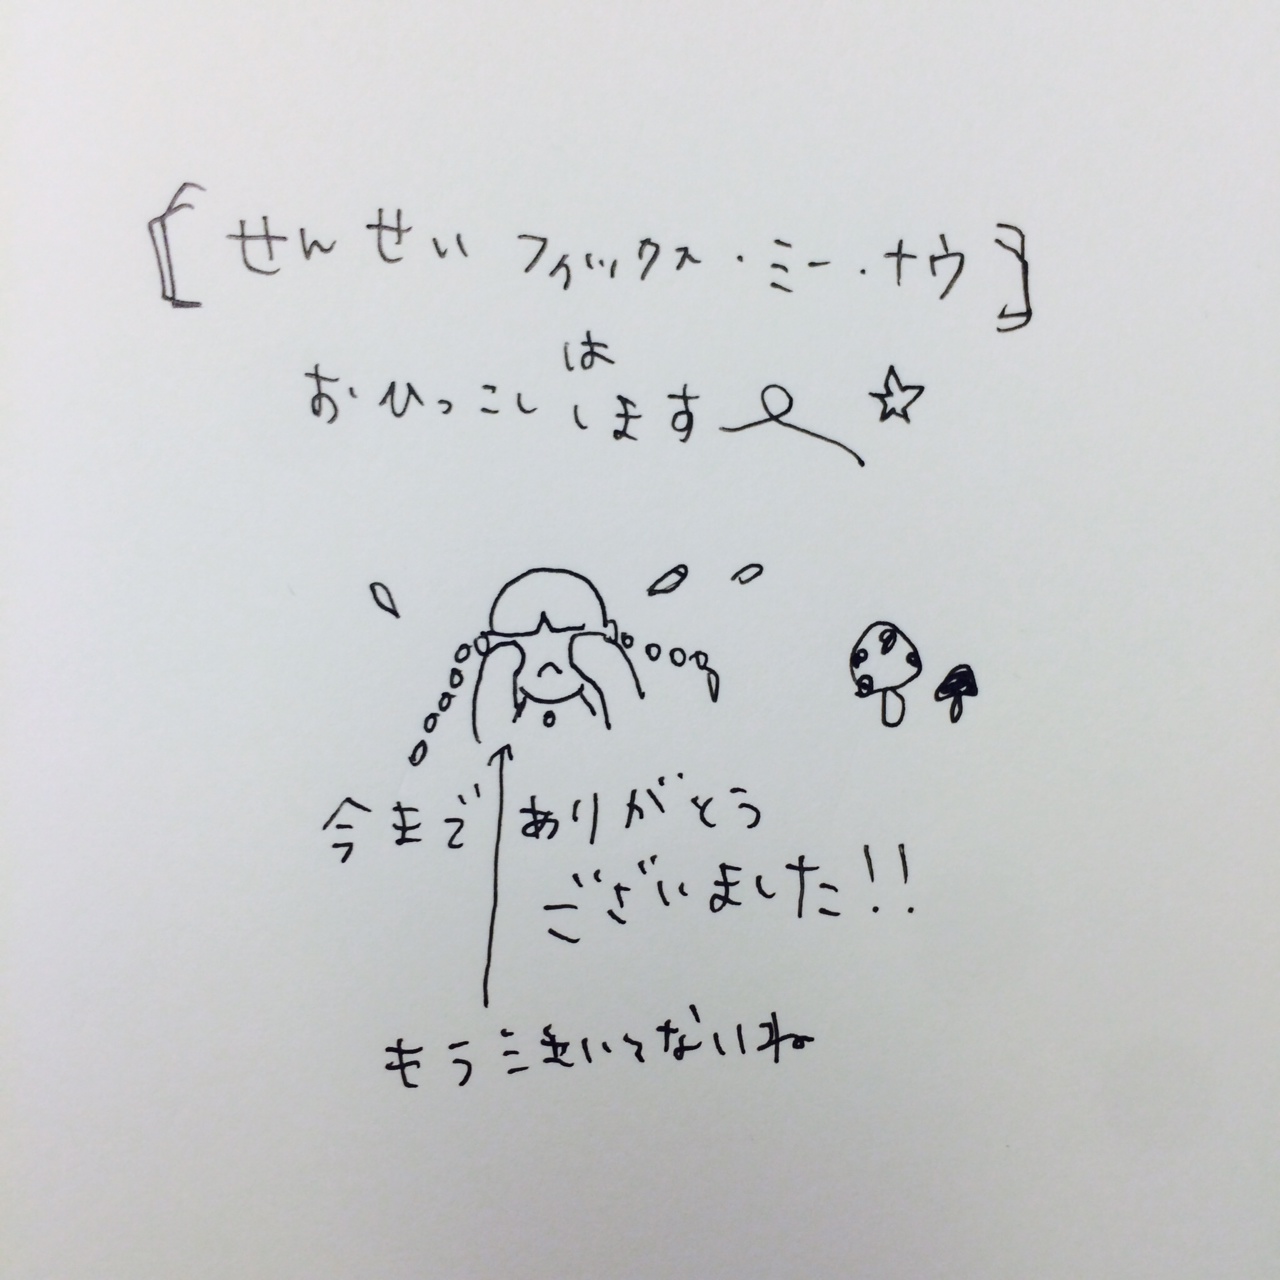 [せんせいフィックス・ミー・ナウ]
は
おひっこしします ☆
今まで ありがとう
ございました!!
もう泣いてないね